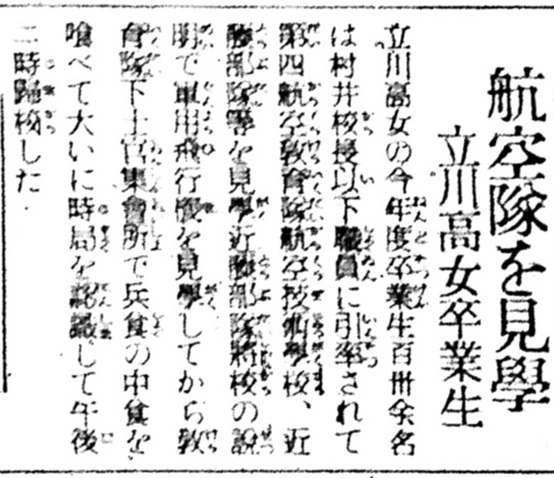 航空隊を見學
立川高女卒業生
立川高女の今年度卒業生百卅余名
は村井校長以下職員に引率されて
第四航空敎育隊航空技術學校、近
藤部隊等を見學近藤部隊將校の說
明で軍用飛行機を見學してから敎
育隊下士官集會所で兵食の中食を
喰べて大いに時局を認識して午後
二時歸校した